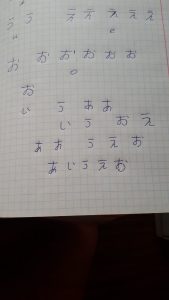 う う え え え え え
u e
お お お お お お
o
お
い う あ あ
い う お え
あ あ う え お
あ い う え お